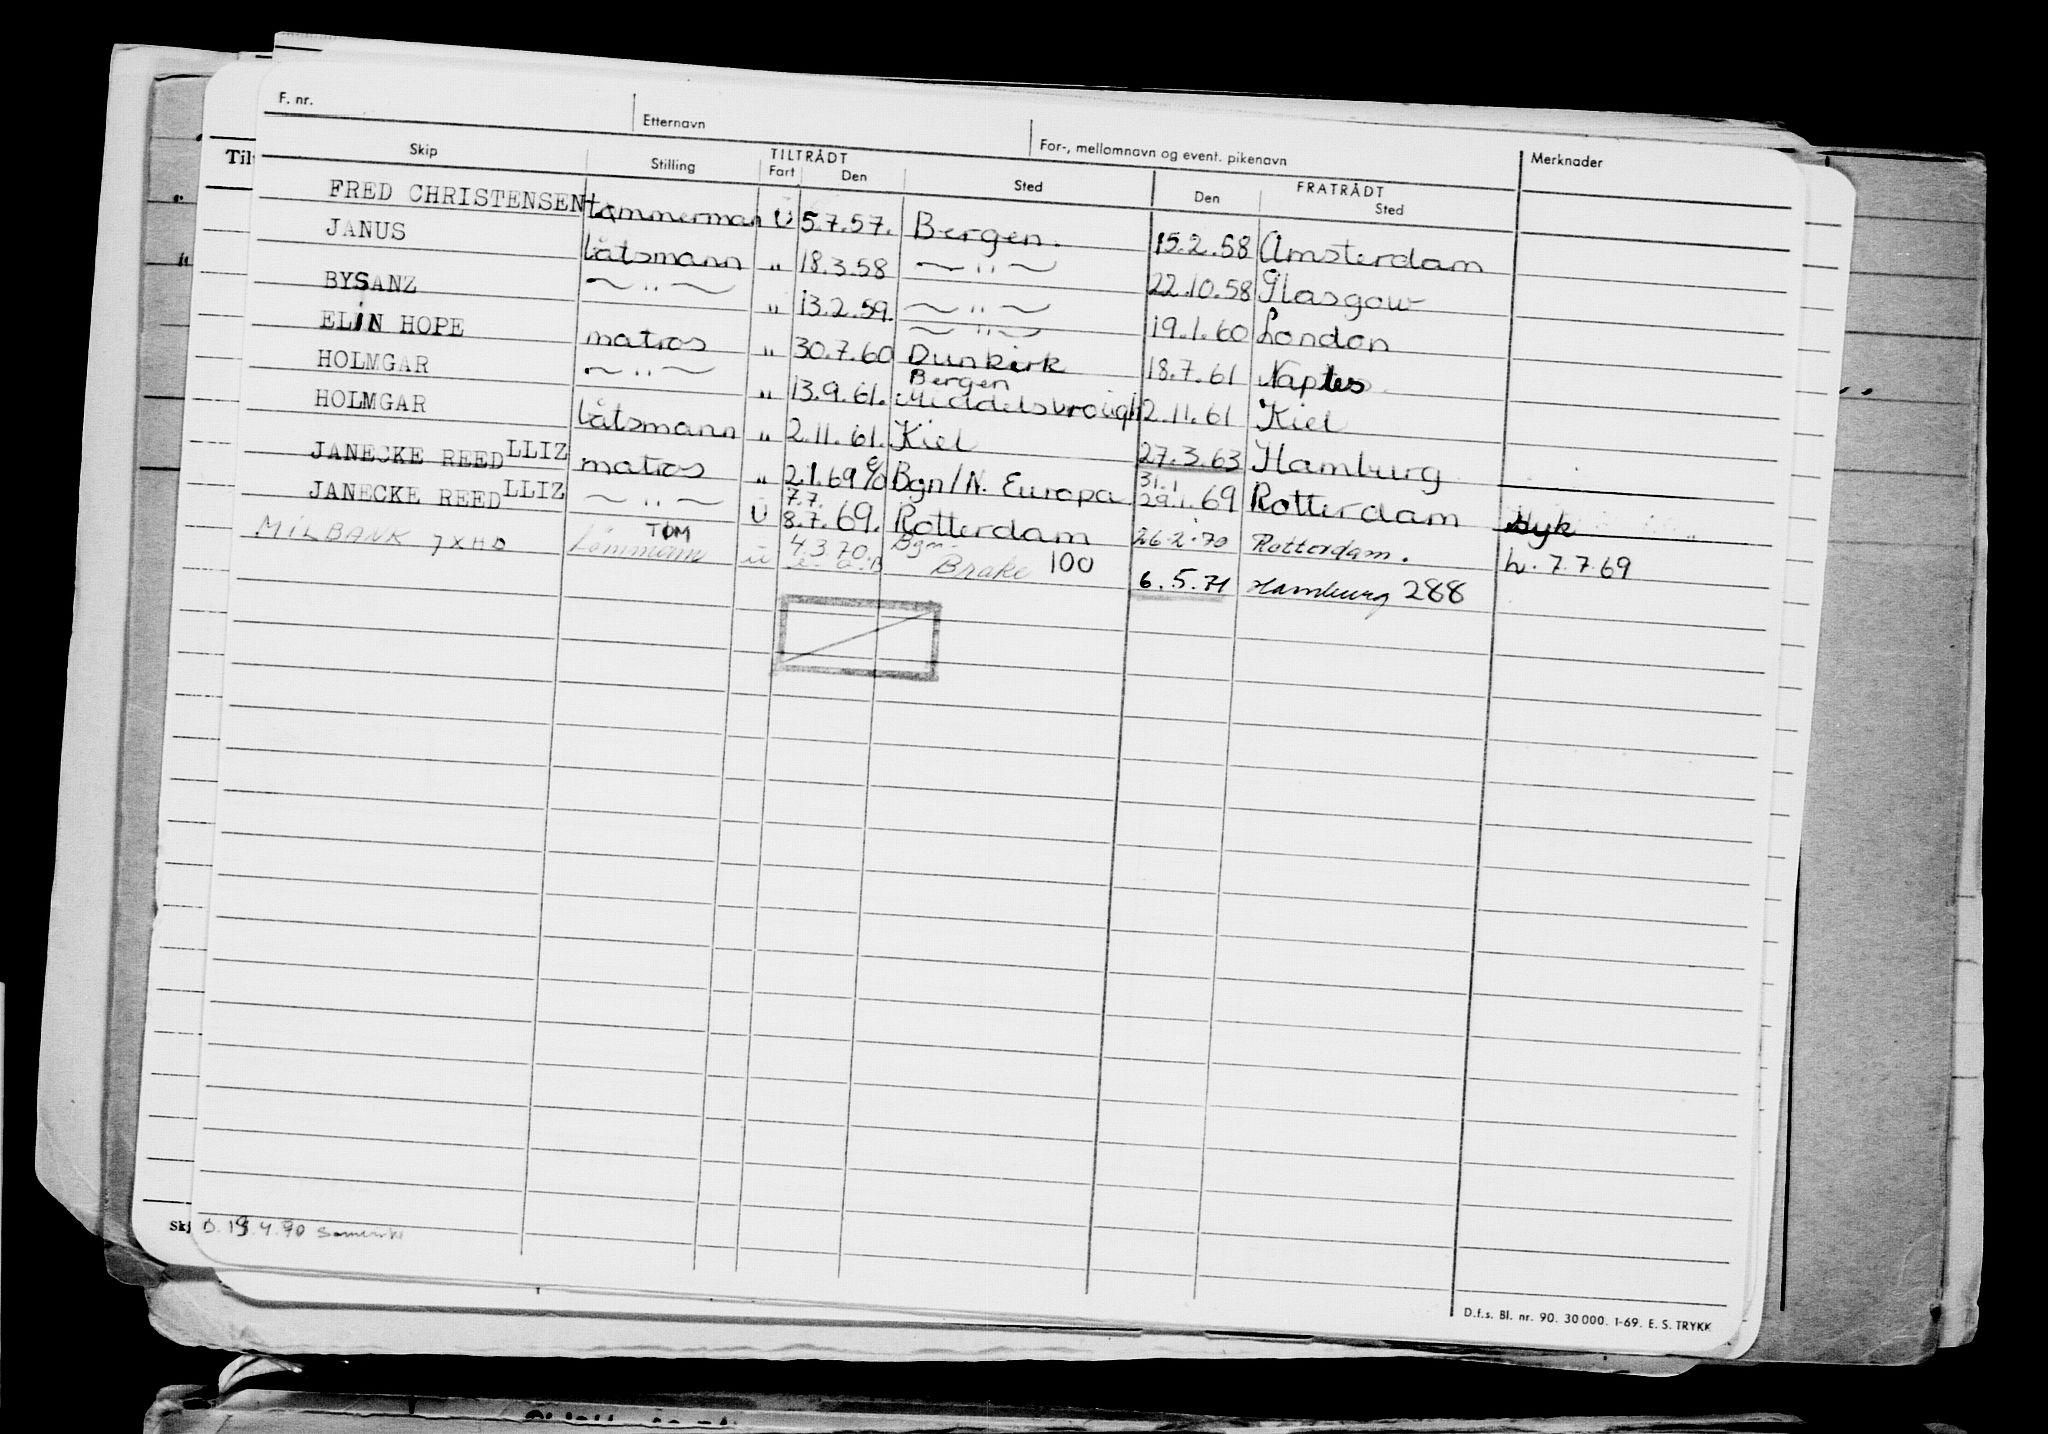 F. nr. Etternavn For-, mellomnavn og event. pikenavn Merknader
Skip Stilling TILTRÅDT Fart Den Sted FRATRÅDT Den Sted
FRED CHRISTENSEN tømmerman U 5.7.57. Bergen. 15.2.58 Amsterdam
JANUS båtsmann " 18.3.58 —"— 22.10.58 Glasgow
BYSANZ —"— " 13.2.59. —"— 19.1.60 London
ELIN HOPE matros " 30.7.60 —"— Dunkirk 18.7.61 Naples
HOLMGAR —"— " 13.9.61. Bergen Middelsbrough 2.11.61 Kiel
HOLMGAR båtsmann " 2.11.61. Kiel 27.3.63 Hamburg
JANECKE REED LLIZ matros " 2.1.69 Bgn/N. Europa 31.1 29.1.69 Rotterdam Syk
JANECKE REED LLIZ —"— U 7.7. 8.7.69. Rotterdam 26.2.70 Rotterdam. h. 7.7.69
MILBANK JXHD Tømmann TØM ü 4.3.70. Bgn Brake 100 6.5.71 Hamburg 288
Til
Skj
D. 19.4.90
D.f.s. Bl. nr. 90. 30 000. 1-69. E. S. TRYKK